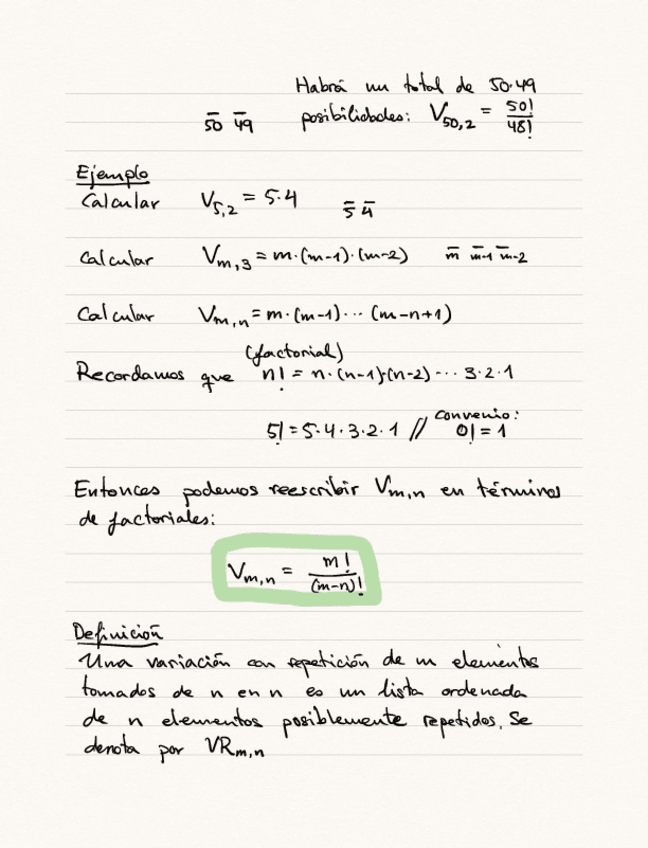 Habrá un total de 50·49
50 49 posibilidades: V50,2 = 50!/48!
Ejemplo
Calcular V5,2 = 5·4 5 4
Calcular Vm,3 = m·(m-1)·(m-2) m m-1 m-2
Calcular Vm,n = m·(m-1)···(m-n+1)
(factorial)
Recordamos que n! = n·(n-1)·(n-2)···3·2·1
convenio:
5! = 5·4·3·2·1 // 0! = 1
Entonces podemos reescribir Vm,n en términos
de factoriales:
Vm,n = m!/(m-n)!
Definición
Una variación con repetición de m elementos
tomados de n en n es un lista ordenada
de n elementos posiblemente repetidos. Se
denota por VRm,n